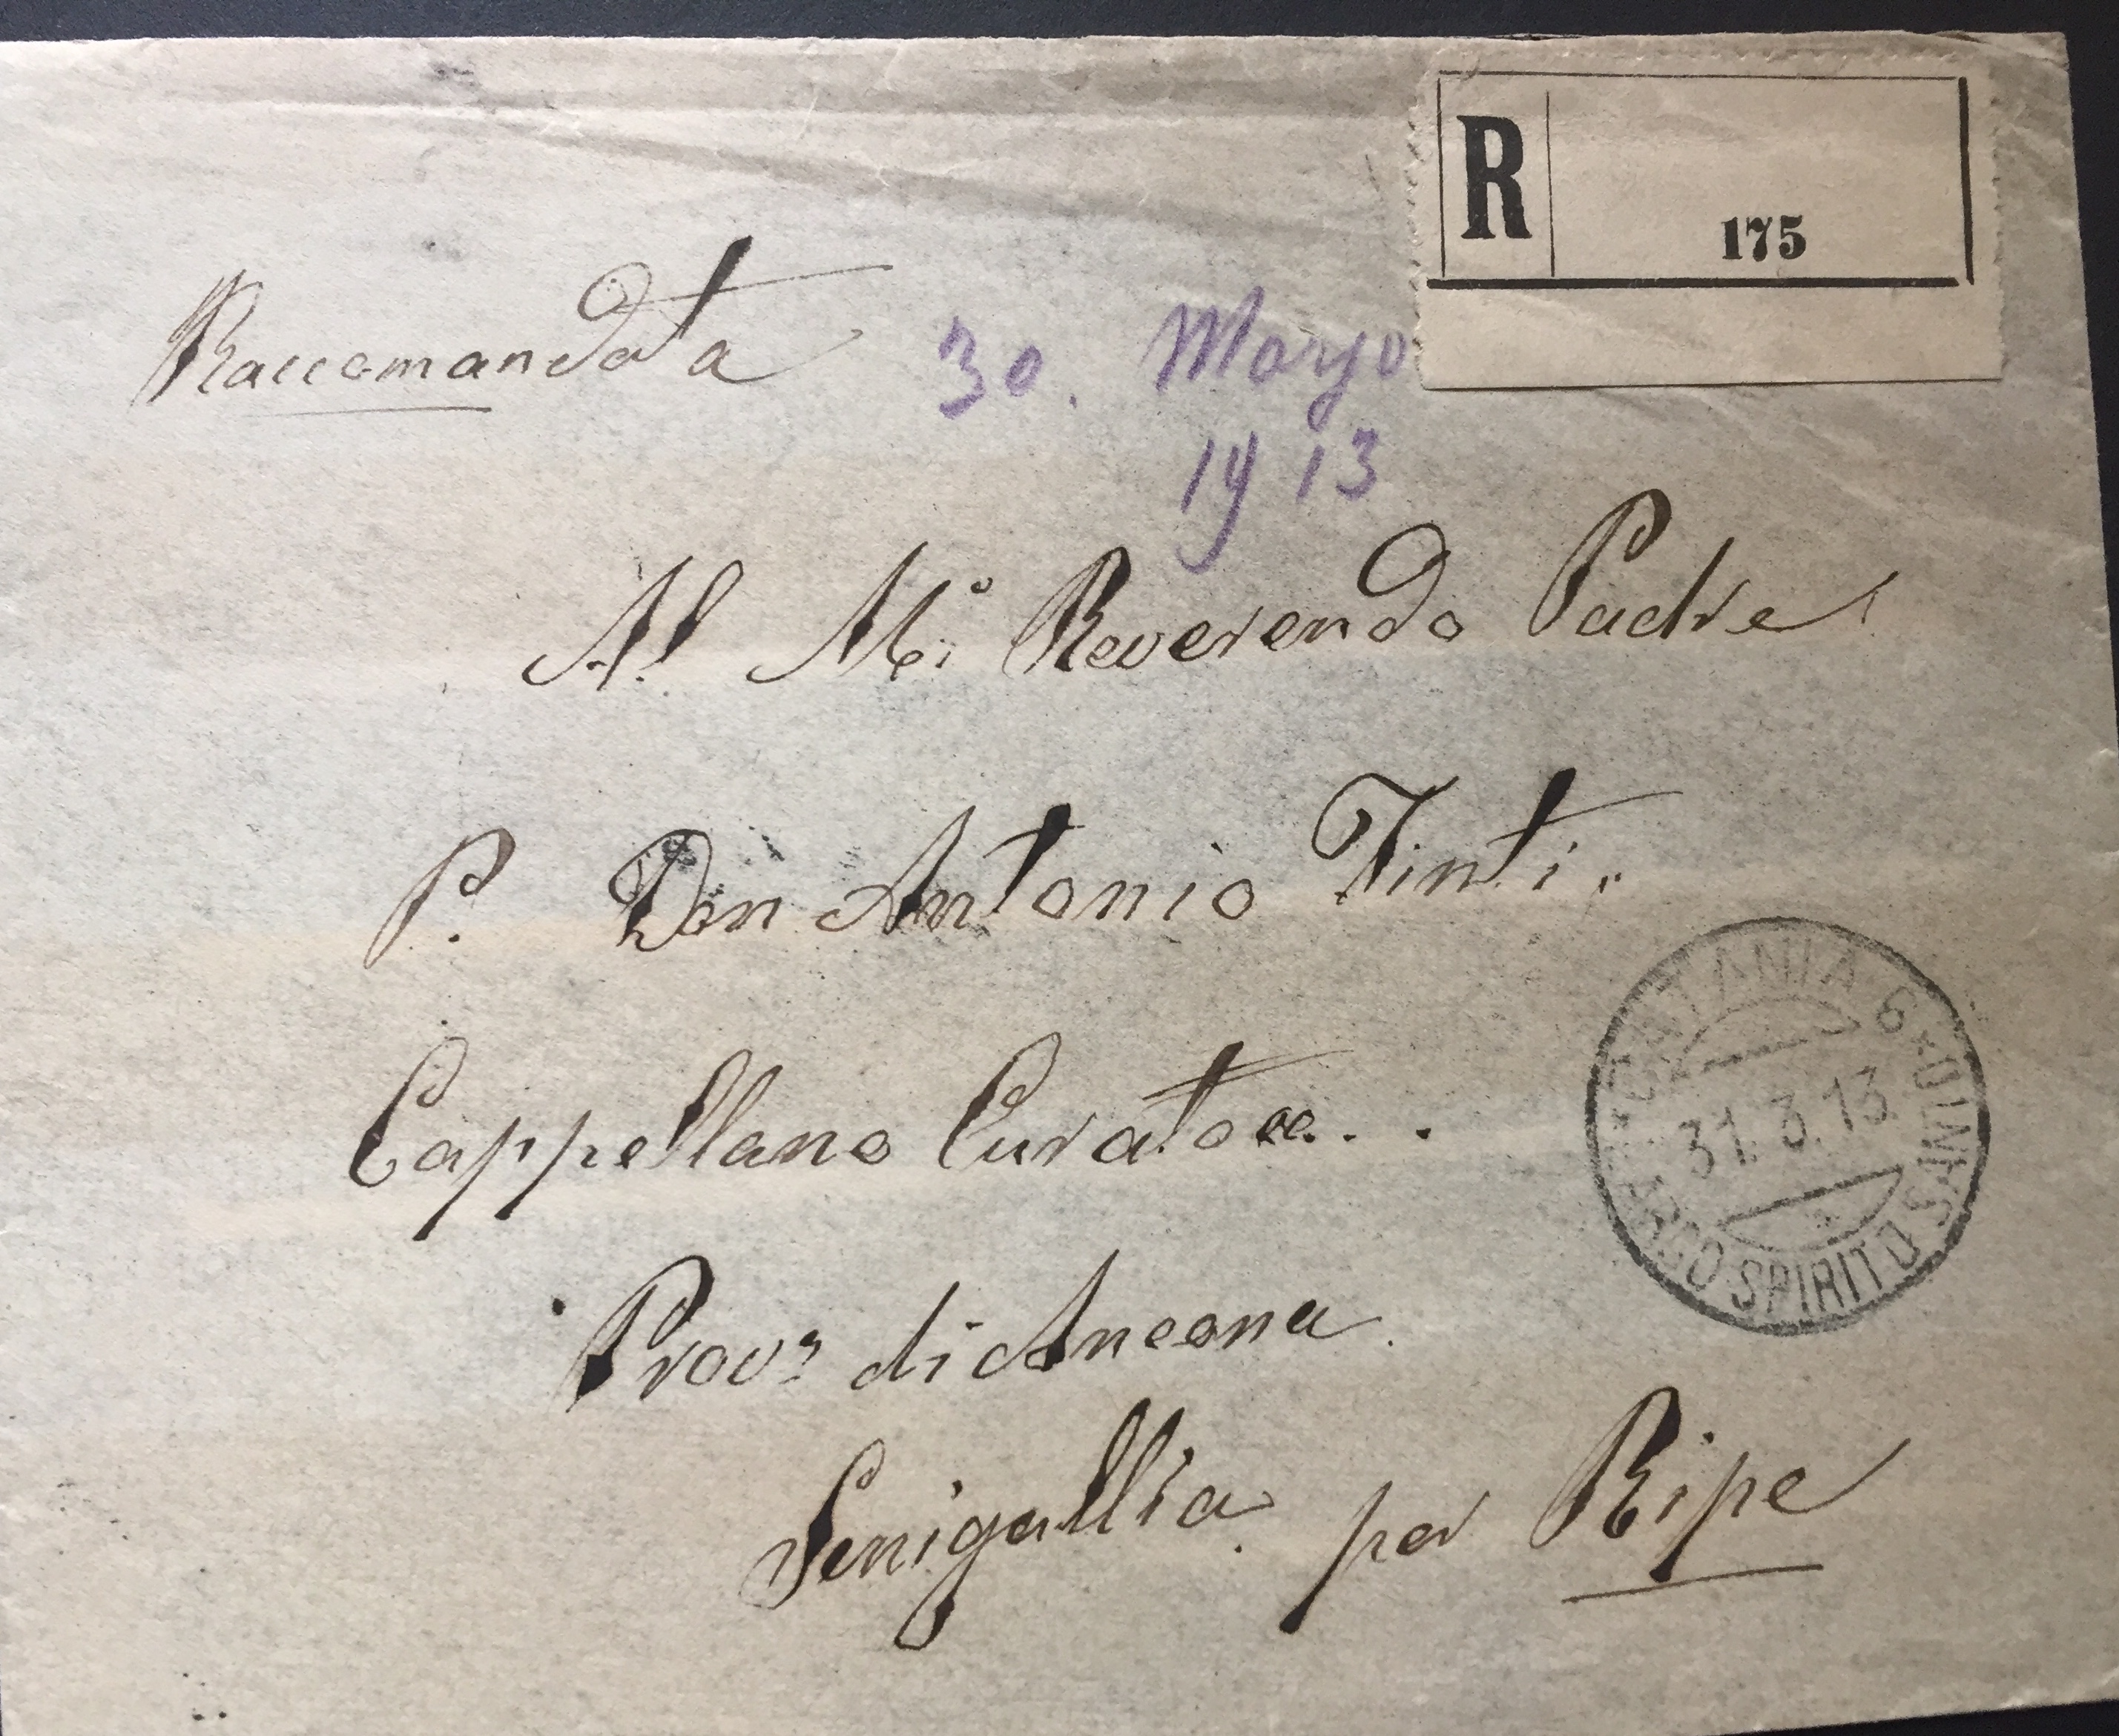 R
175
Raccomandata
30. Marzo
1913
Al M.º Reverendo Padre
P. Don Antonio Tinti.
Cappellano Curato ec. . .
Provª di Ancona.
Senigallia. per Ripe
CATANIA 6
31.3.13
SPIRITO SANTO